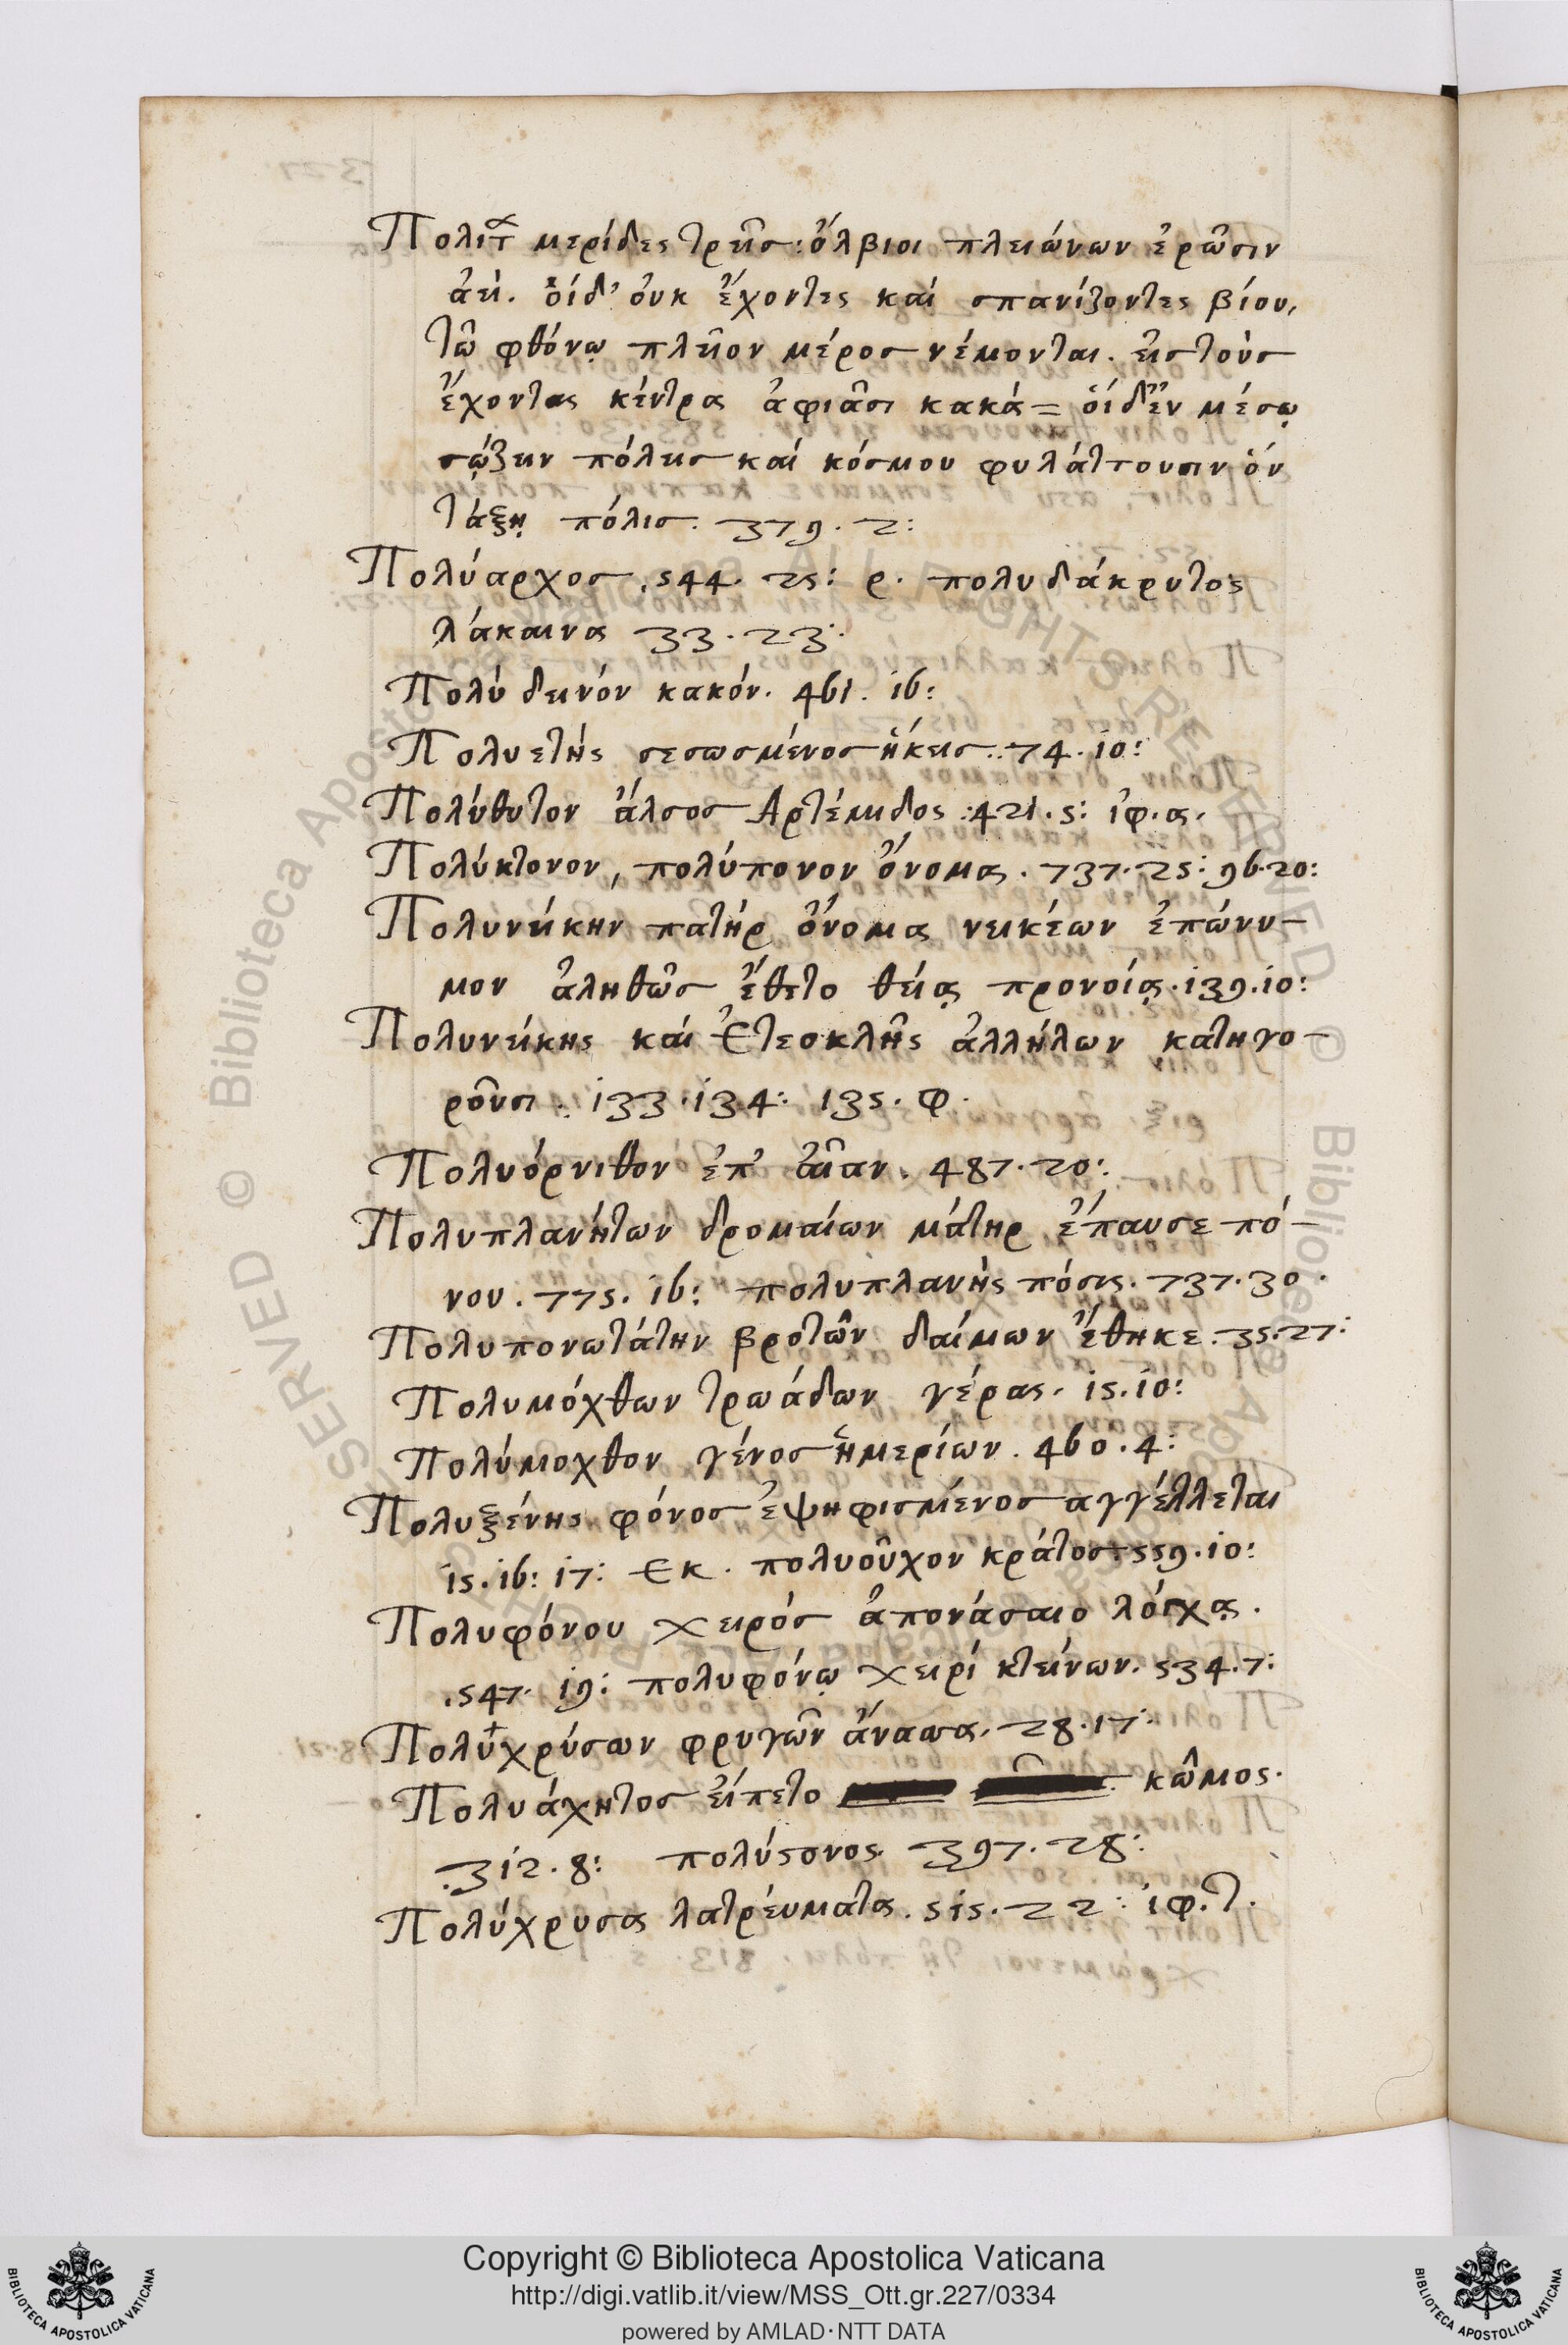 Πολιτ͂ μερίδες τρεῖς: ὄλβιοι πλειώνων ἐρῶσιν
ἀεὶ. ὃίδ' ὀυκ ἔχοντες καὶ σπανίζοντες βίου,
τῶ φθόνῳ πλεῖον μέρος νέμονται. εἰς τοὺς
ἔχοντας κέντρα ἀφιᾶσι κακά = ὁίδ' ἐν μέσῳ
σώζειν πόλεις καὶ κόσμον φυλάττουσιν ὃν
τάξῃ πόλις. 379. 2:
Πολύαρχος. 544. 25: ρ. πολυδάκρυτος
λάκαινα 33. 23:
Πολύ δεινόν κακόν. 461. 16:
Πολυετής σεσωσμένος ἥκεις. 74. 10:
Πολύθυτον ἄλσος Αρτέμιδος. 421. 5: ἰφ. α.
Πολύκτονον, πολύπονον ὄνομα. 737. 25: 96. 20:
Πολυνείκην πατήρ ὄνομα νεικέων ἐπώνυ-
μον ἀληθῶς ἔθετο θείᾳ προνοίᾳ. 139. 10:
Πολυνείκης καὶ Ἐτεοκλῆς ἀλλήλων κατηγο-
ροῦσι. 133. 134: 135. φ.
Πολυόρνιθον ἐπ' ἀῖαν. 487. 20:
Πολυπλανήτων δρομαίων μάτηρ ἔπαυσε πό-
νου. 775. 16: πολυπλανὴς πόσις. 737. 30.
Πολυπονωτάτην βροτῶν δαίμων ἔθηκε. 35. 27:
Πολυμόχθων τρωάδων γέρας. 15. 10:
Πολύμοχθον γένος ἡμερίων. 460. 4:
Πολυξένης φόνος ἐψηφισμένος αγγέλλεται
15. 16: 17: Εκ. πολυοῦχον κράτος. 559. 10:
Πολυφόνου χειρός ἀπονάσαιο λόγχᾳ.
547. 19: πολυφόνῳ χειρί κτείνων. 534. 7:
Πολυχρύσων φρυγῶν ἄνασσα. 28. 17:
Πολυάχητος εἵπετο κῶμος.
312. 8: πολύστονος. 397. 28:
Πολύχρυσα λατρέυματα. 515. 22: ἰφ. τ.
Copyright © Biblioteca Apostolica Vaticana
http://digi.vatlib.it/view/MSS_Ott.gr.227/0334
powered by AMLAD·NTT DATA